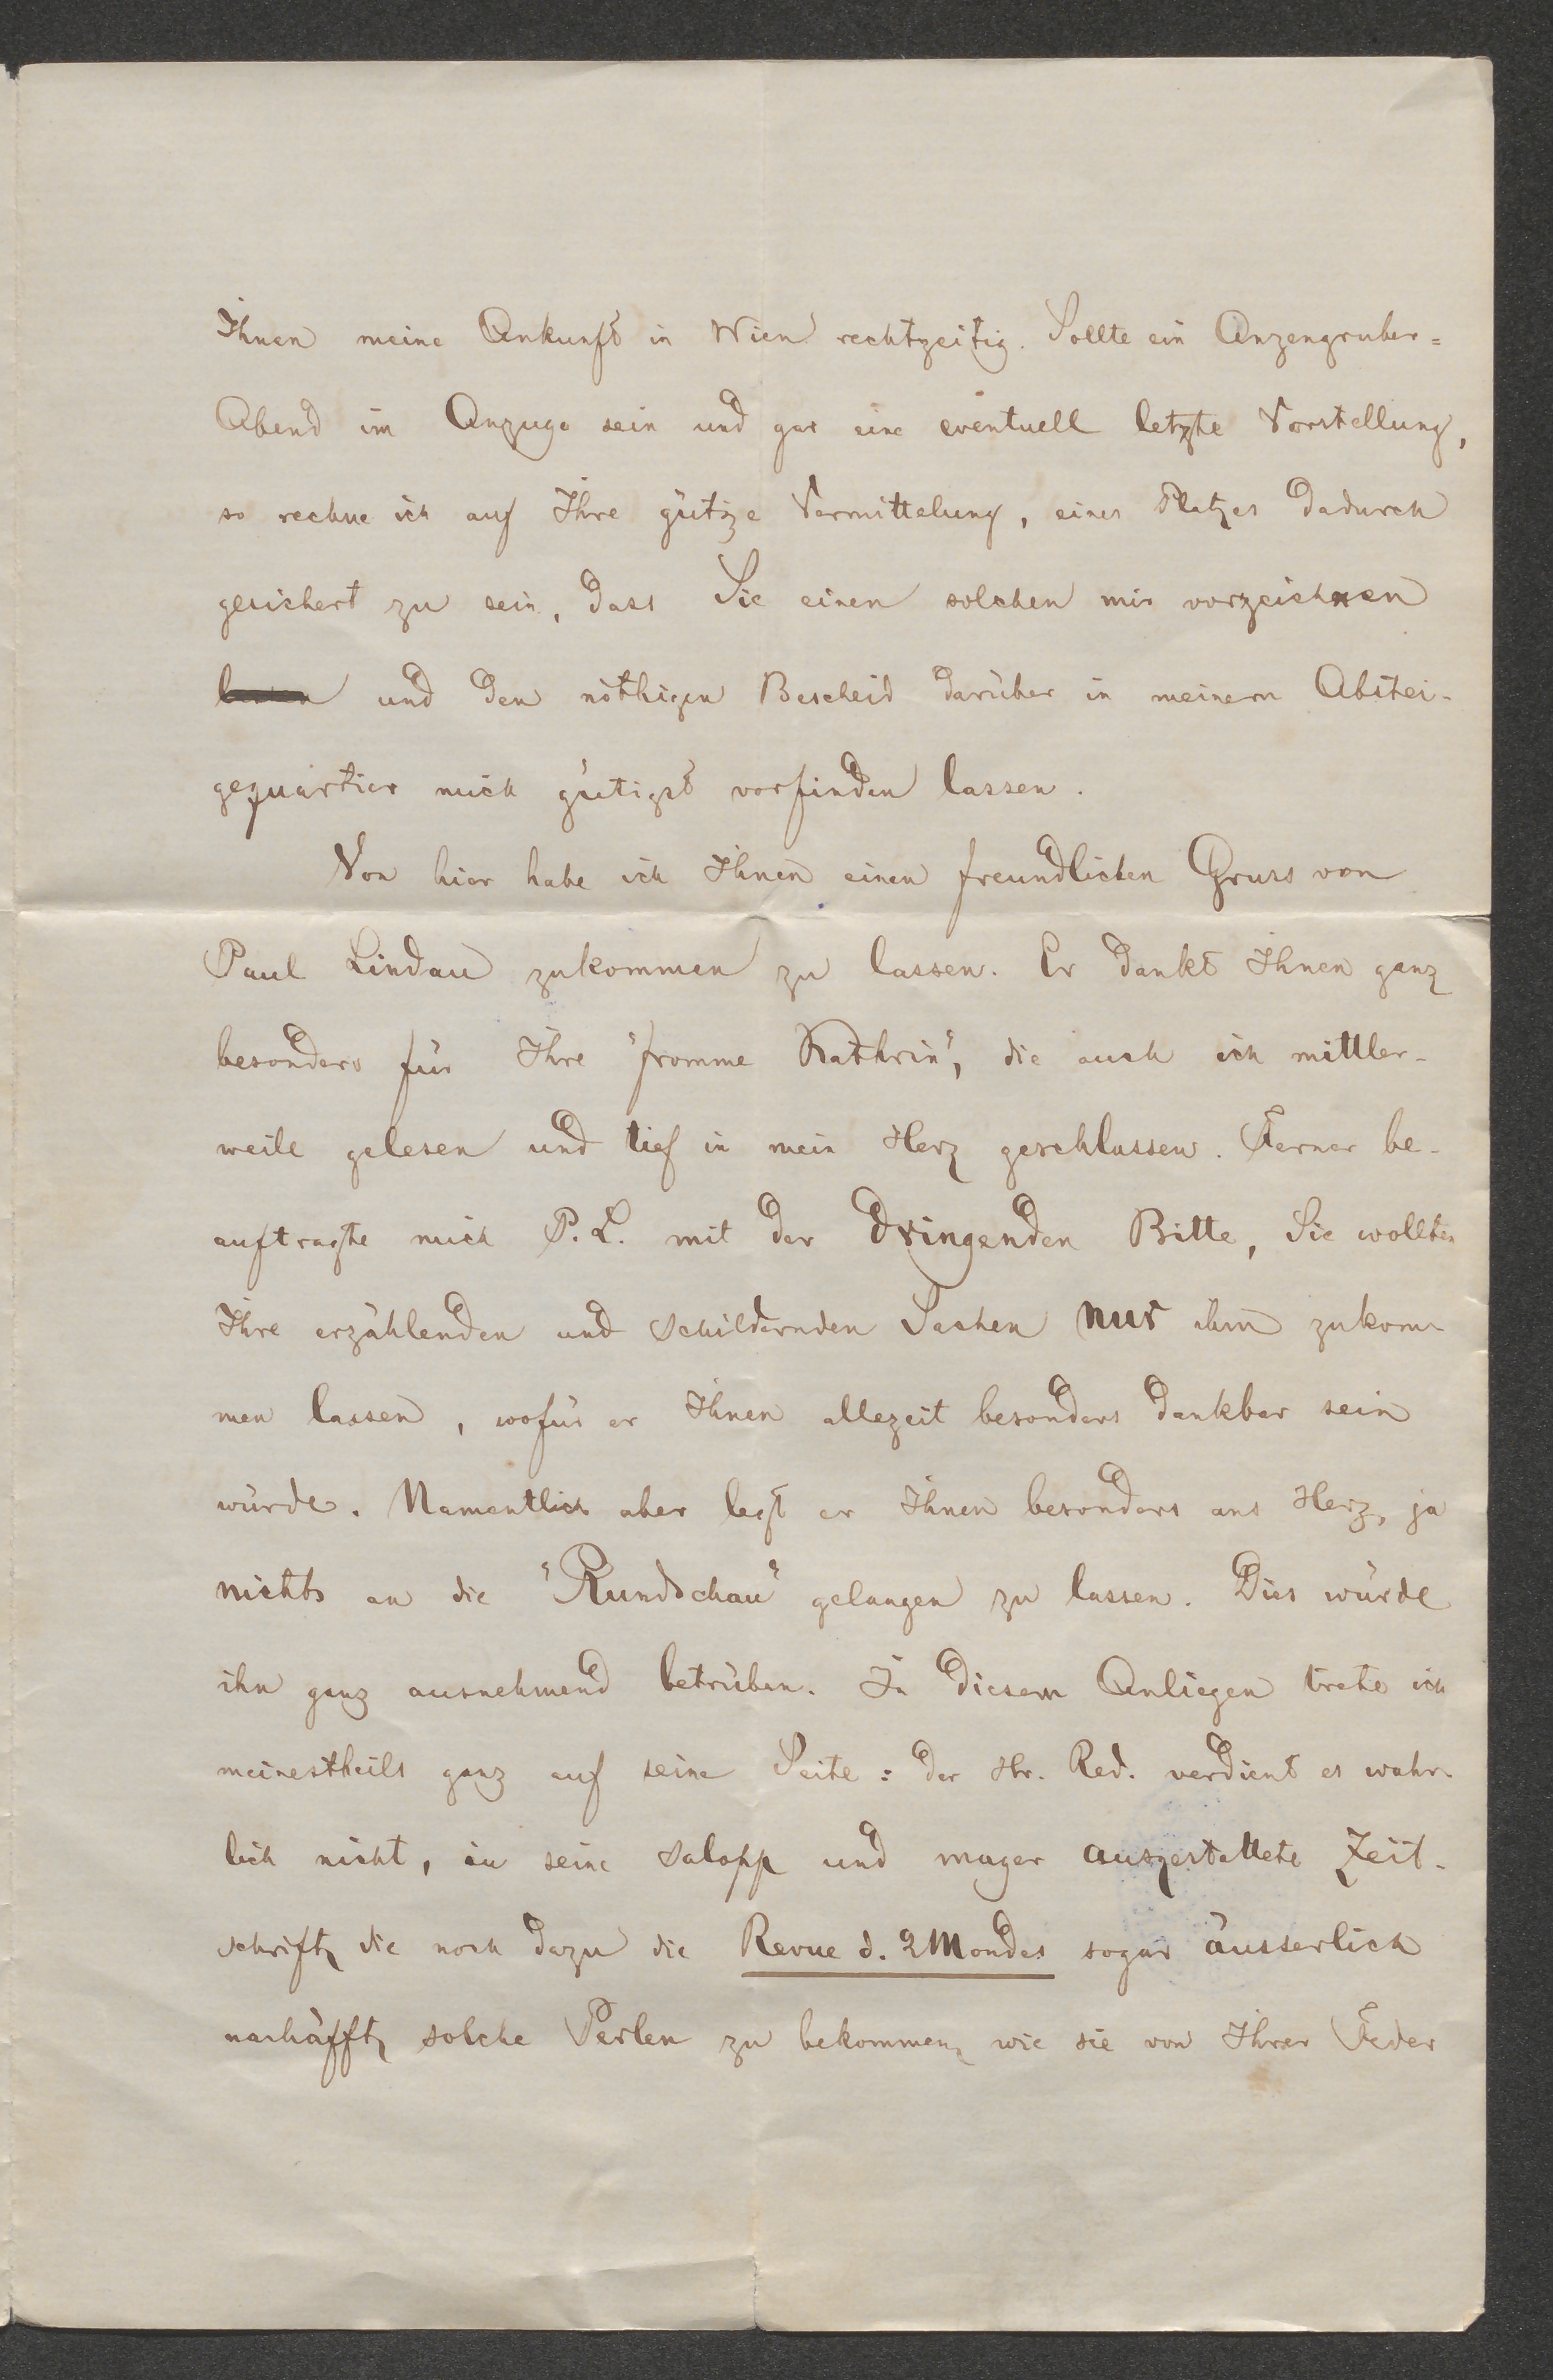 Ihnen meine Ankunft in Wien rechtzeitig. Sollte ein Anzengruber=
Abend im Anzuge sein und gar eine eventuell letzte Vorstellung,
so rechne ich auf Ihre gütige Vermittelung, eines Platzes dadurch
gesichert zu sein, dass Sie einen solchen mir vorzeichnen
und den nöthigen Bescheid darüber in meinem Abstei-
gequartier mich gütigst vorfinden lassen.
Von hier habe ich Ihnen einen freundlichen Gruss von
Paul Lindau zukommen zu lassen. Er dankt Ihnen ganz
besonders für Ihre "fromme Kathrin", die auch ich mittler-
weile gelesen und tief in mein Herz geschlossen. Ferner be-
auftragte mich P. L. mit der dringenden Bitte, Sie wollten
Ihre erzählenden und schildernden Sachen nur ihm zukom-
men lassen, wofür er Ihnen allezeit besonders dankbar sein
würde. Namentlich aber legt er Ihnen besonders ans Herz, ja
nichts an die "Rundschau" gelangen zu lassen. Dies würde
ihn ganz ausnehmend betrüben. In diesem Anliegen trete ich
meinestheils ganz auf seine Seite: der Hr. Red. verdient es wahr-
lich nicht, in seine salopp und mager ausgestattete Zeit-
schrift, die noch dazu die Revue d. 2 Mondes sogar äusserlich
nachäfft, solche Perlen zu bekommen, wie sie von Ihrer Feder